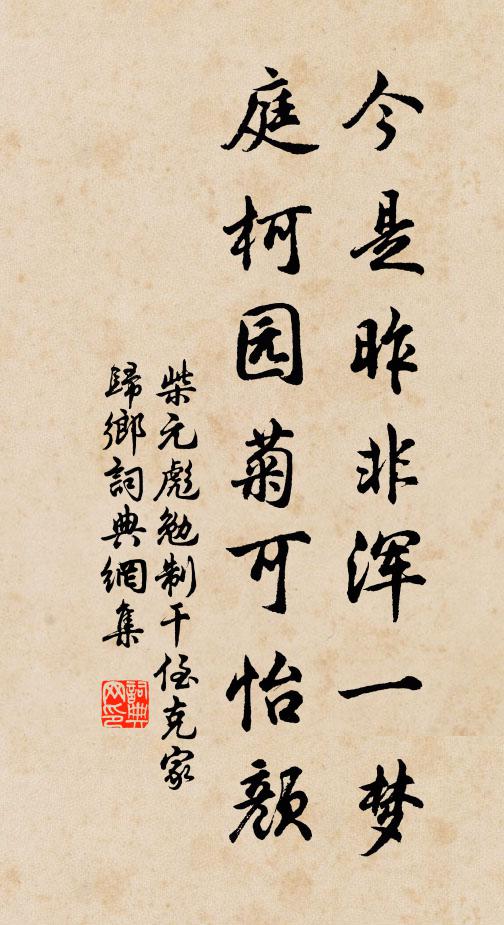 今是昨非浑一梦
庭柯园菊可怡颜
柴元彪勉制干侄克家
歸鄉詞典網集
詞典网印